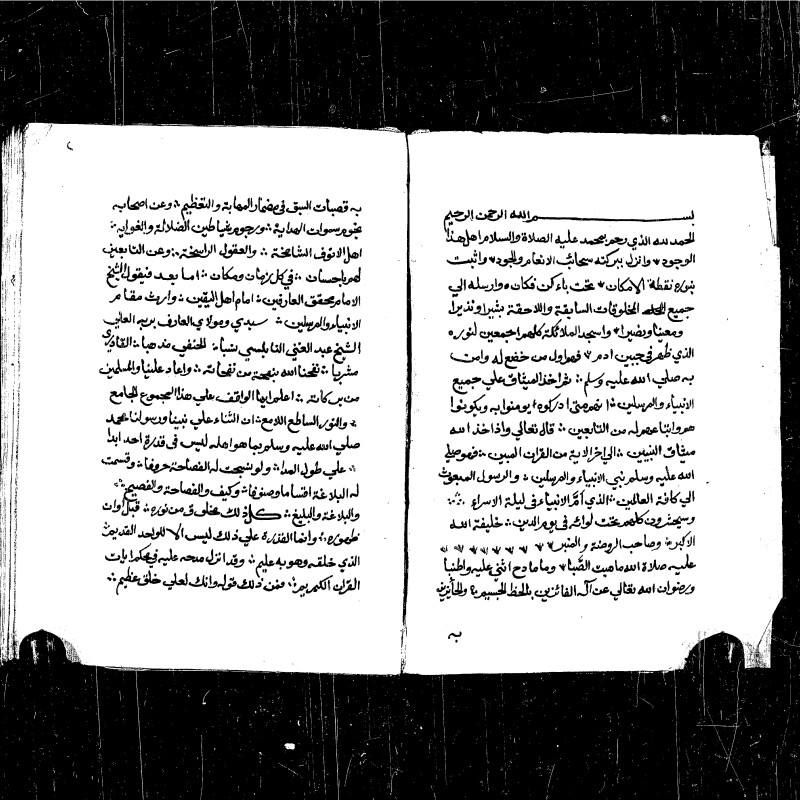 بسم الله الرحمن الرحيم
الحمد لله الذي رحم بمحمد عليه الصلاة والسلام اهل هذا
الوجود وانزل ببركته سحائب الانعام والجود واثبت
بنوره نقطة الامكان تحت باء كن فكان وارسله الي
جميع المخلوقات السابقة واللاحقة بشيرا ونذيرا
ومعينا ونصيرا واسجد الملائكة كلهم اجمعين لنوره
الذي ظهر في جبين ادم فهو اول من خضع له وامن
به صلي الله عليه وسلم ثم اخذ الميثاق علي جميع
الانبياء والمرسلين انهم متى ادركوه يومنوا به ويكونوا
هم واتباعهم له من التابعين قال تعالي واذ اخذ الله
ميثاق النبيين الي اخر الاية من القران المبين فهو صلي
الله عليه وسلم نبي الانبياء والمرسلين والرسول المبعوث
الي كافة العالمين الذي امّ الانبياء في ليلة الاسراء
وسيحشرون كلهم تحت لوائه في يوم الدين خليفة الله
الاكبر وصاحب الروضة والمنبر
عليه صلاة الله ما هبت الصَّبا وما مادح اثني عليه واطنبا
ورضوان الله تعالي عن آله الفائزين بالحظ الجسيم والحائزين
به
به قصبات السبق في مضمار المهابة والتعظيم وعن اصحابه
نجوم سموات الهداية ورجوم شياطين الضلالة والغواية
اهل الانوف الشامخة والعقول الراسخة وعن التابعين
لهم باحسان في كل زمان ومكان اما بعد فيقول الشيخ
الامام محقق العارفين امام اهل اليقين وارث مقام
الانبياء والمرسلين سيدي ومولاي العارف بربه العلي
الشيخ عبد الغني النابلسي نسبا الحنفي مذهبا القادري
مشربا نفحنا الله بنفحة من نفحاته واعاد علينا والمسلمين
من بركاته اعلم ايها الواقف علي هذا المجموع الجامع
والنور الساطع اللامع ان الثناء علي نبينا ورسولنا محمد
صلي الله عليه وسلم بما هو اهله ليس في قدرة احد ابدا
علي طول المدا ولو نسجت له الفصاحة حروفا وقسمت
له البلاغة اقساما وصنوفا وكيف والفصاحة والفصيح
والبلاغة والبليغ كل ذلك مخلوق من نوره قبل اوان
ظهوره وانما القدرة علي ذلك ليس الا للواحد القديم
الذي خلقه وهو به عليم وقد انزل مدحه عليه في محكم ايات
القران الكريم فمن ذلك قوله وانك لعلي خلق عظيم